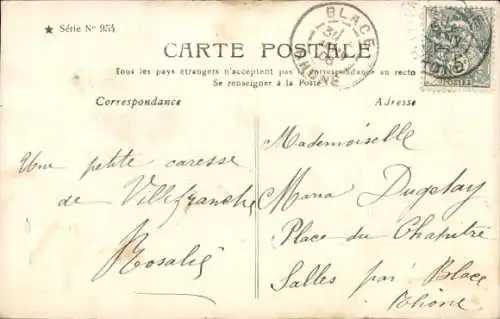 ★ Série N° 954
CARTE POSTALE
Tous les pays étrangers n'acceptent pas la correspondance au recto
Se renseigner à la Poste
BLACE
RHONE
5c
POSTES
Correspondance
Adresse
Une petite caresse
de Villefranche
Rosalie
Mademoiselle
Maria Dugelay
Place du Chapitre
Salles par Blace
Rhône